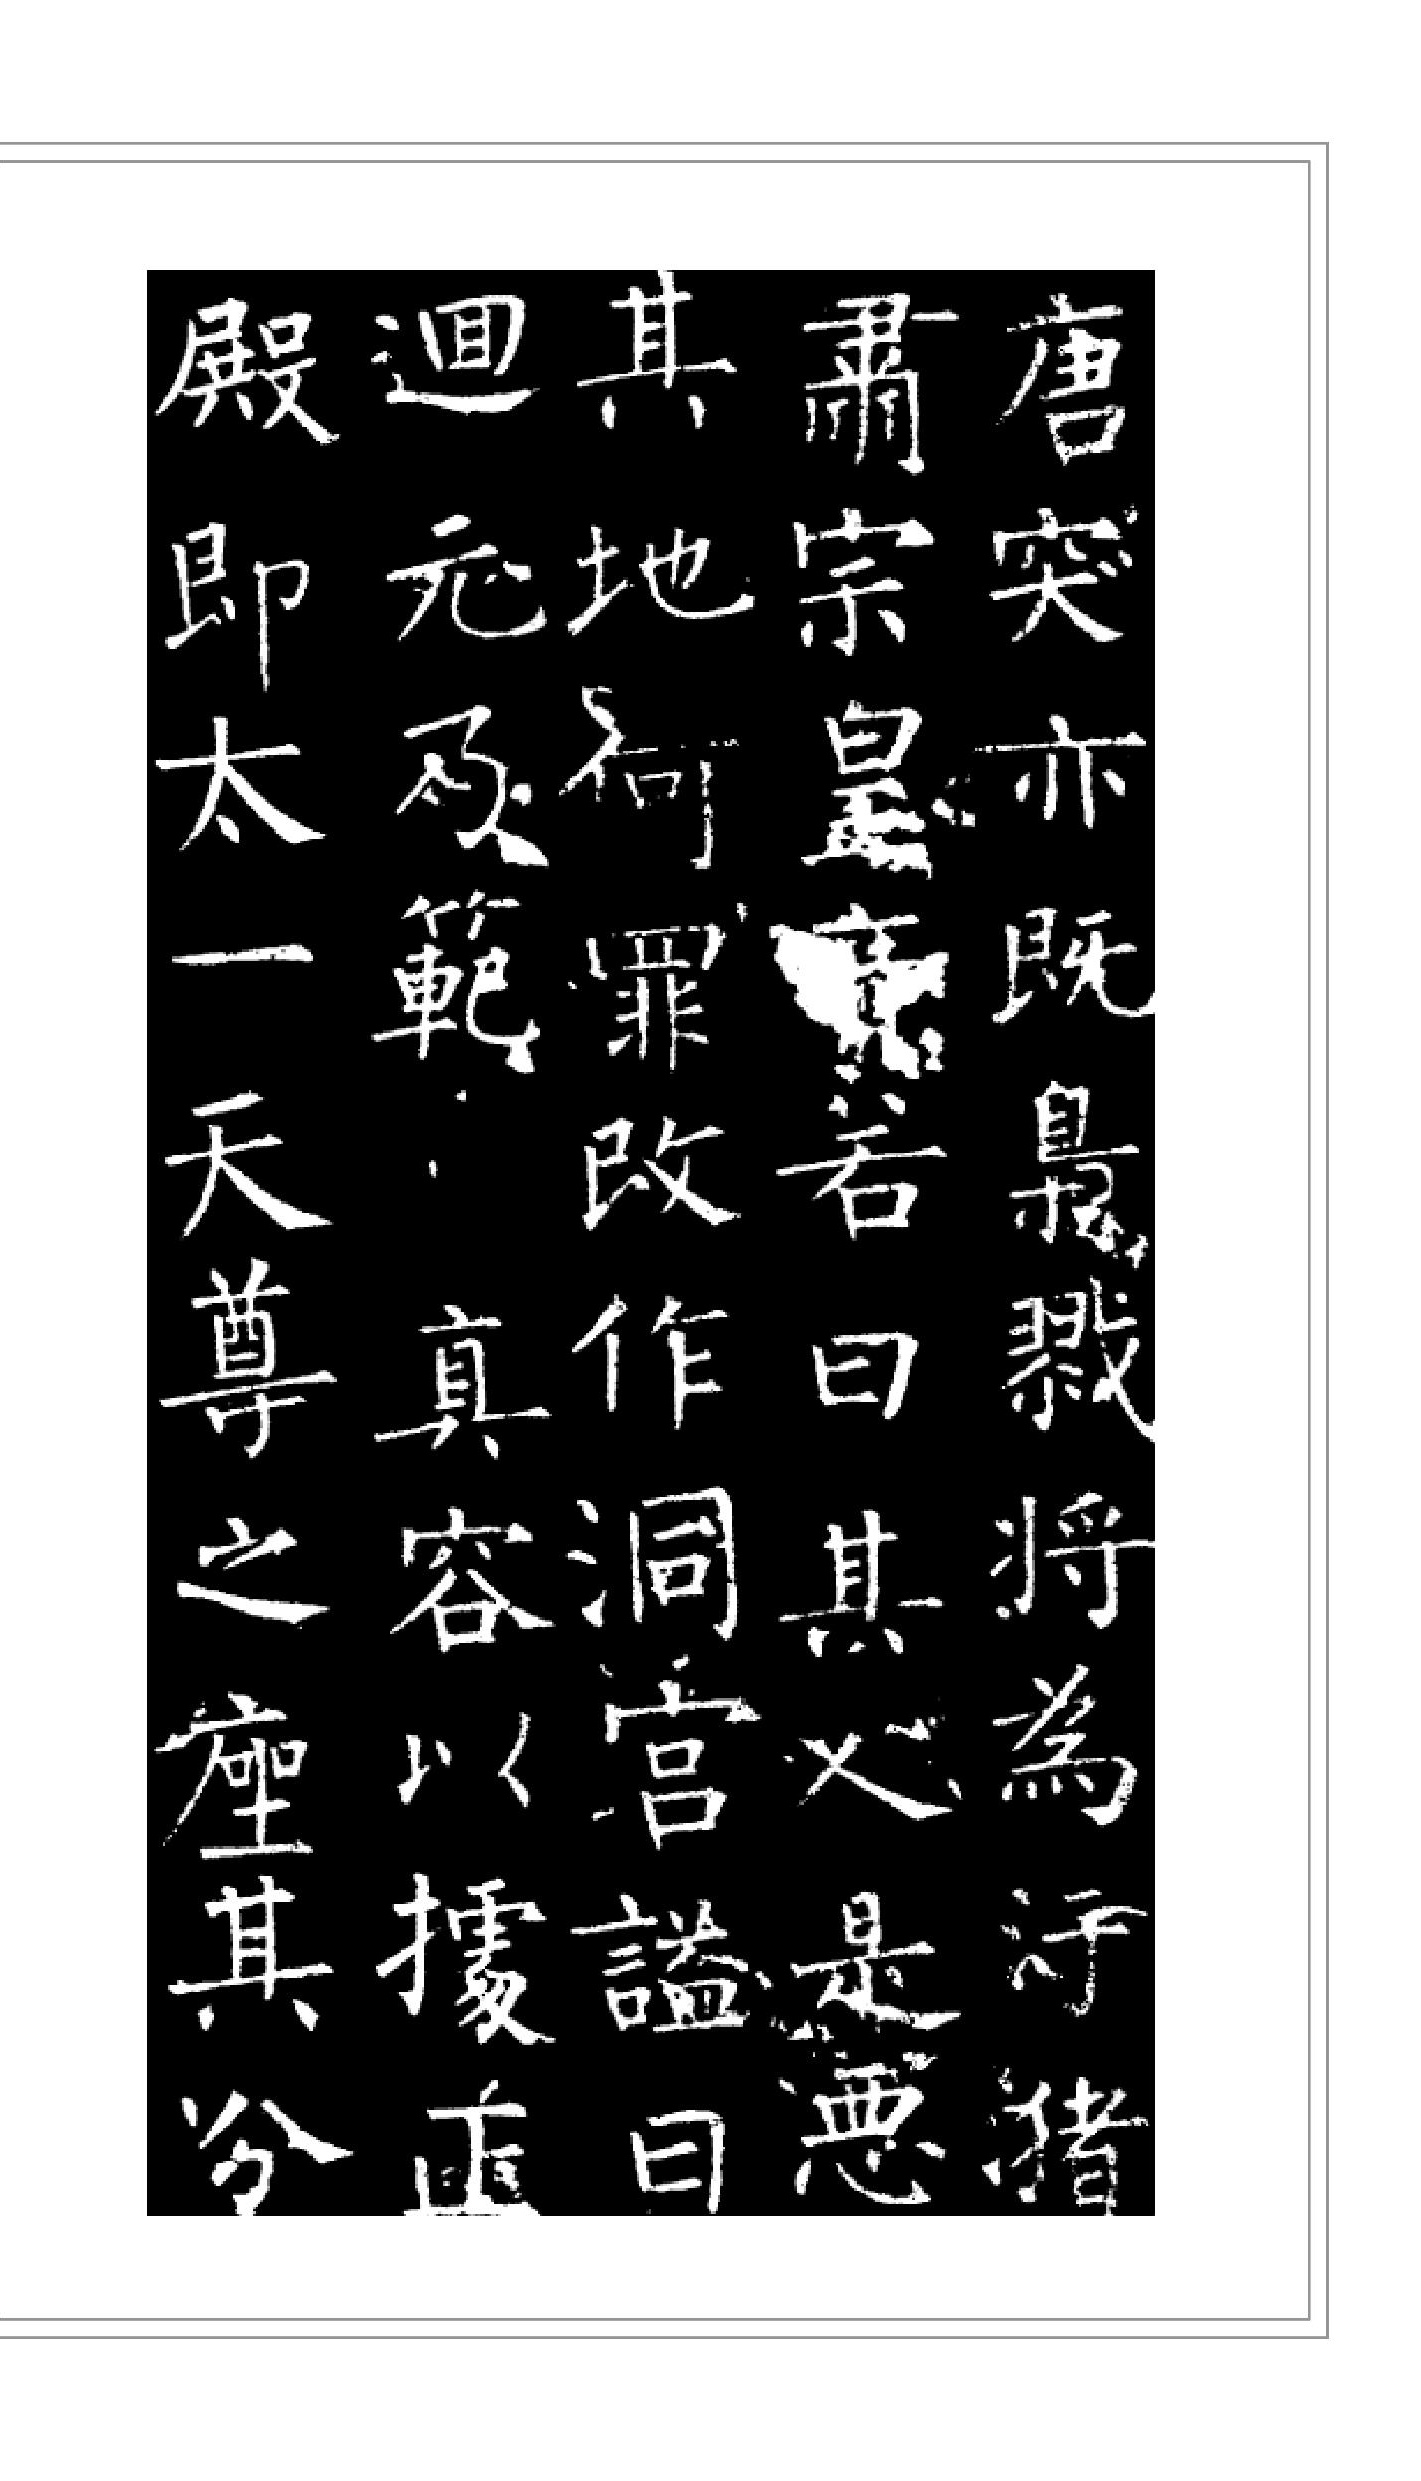 唐突亦既梟戮將為汙猪
肅宗皇帝若曰其人是惡
其地何罪改作洞宮謚曰
迴元及範真容以據正
殿即太一天尊之座其分